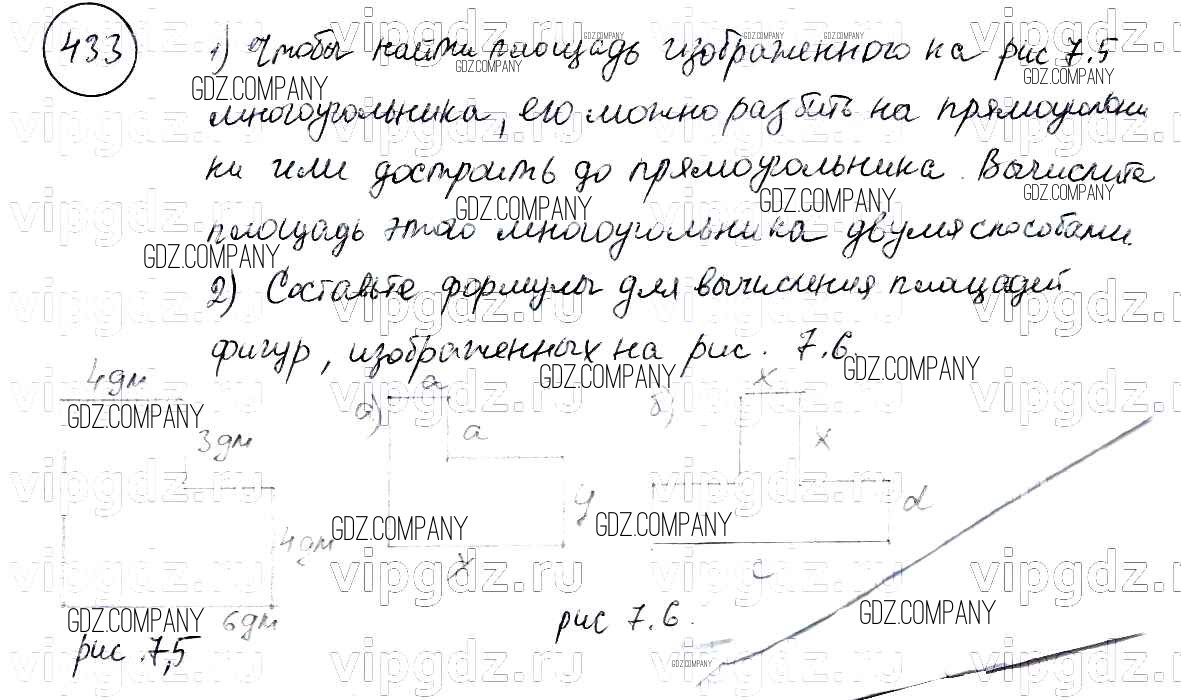 433
1) Чтобы найти площадь изображенного на рис 7.5
многоугольника, его можно разбить на прямоугольни
ки или достроить до прямоугольника. Вычислите
площадь этого многоугольника двумя способами.
2) Составьте формулы для вычисления площадей
фигур, изображенных на рис. 7.6.
4дм
3дм
4дм
6дм
рис. 7,5
а)
a
a
y
б)
x
x
d
c
рис 7.6.
GDZ.COMPANY
vipgdz.ru